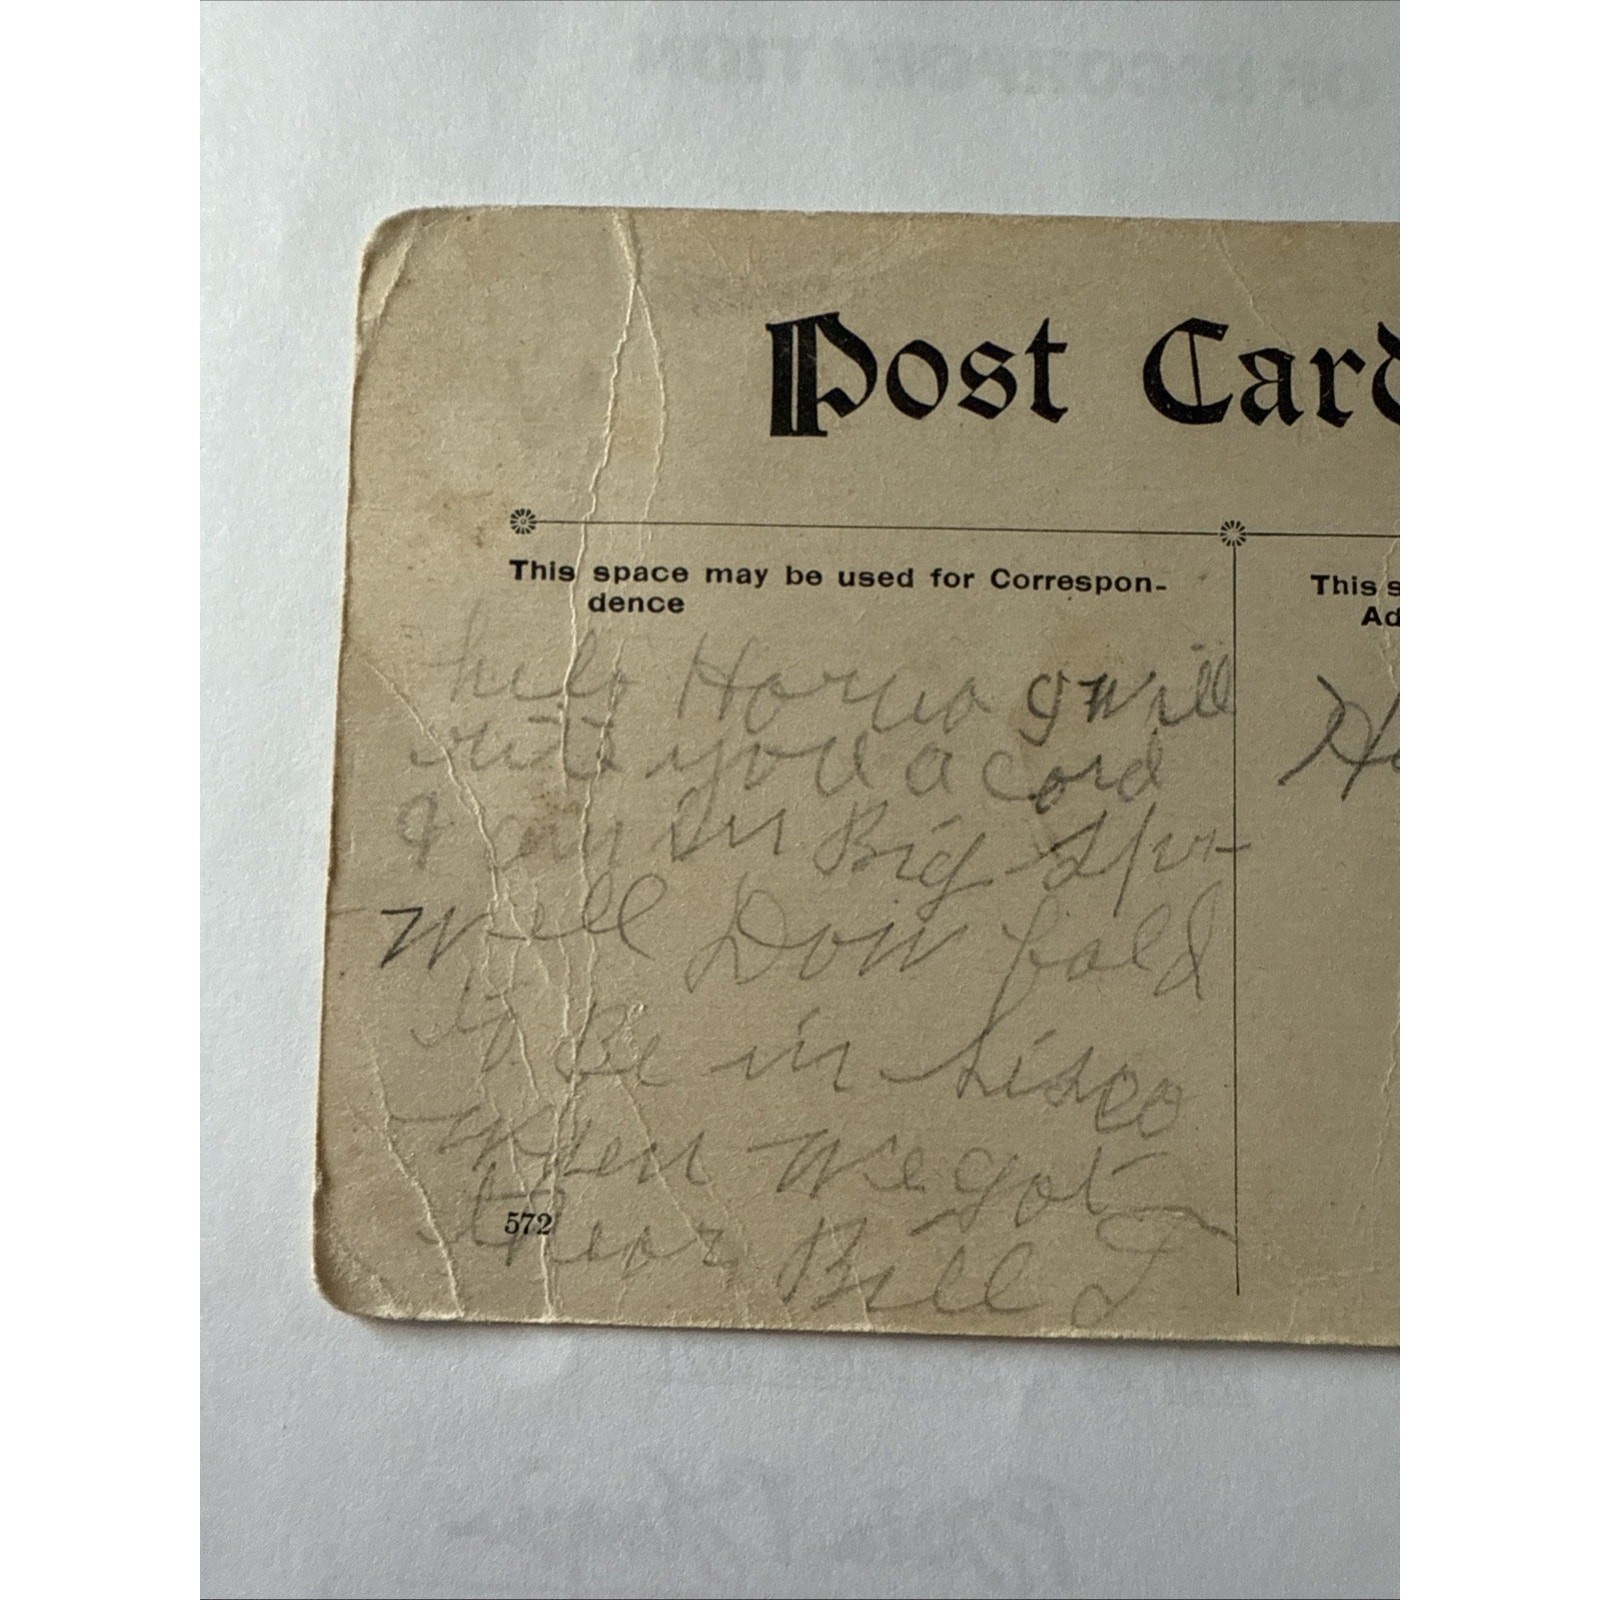 Post Card
This space may be used for Correspon-
dence
This s
Ad
helo I will
you a cord
Ho
I am in Big Spr
Well Dow
to Be in Sisco
when we got
thear Bill J
572